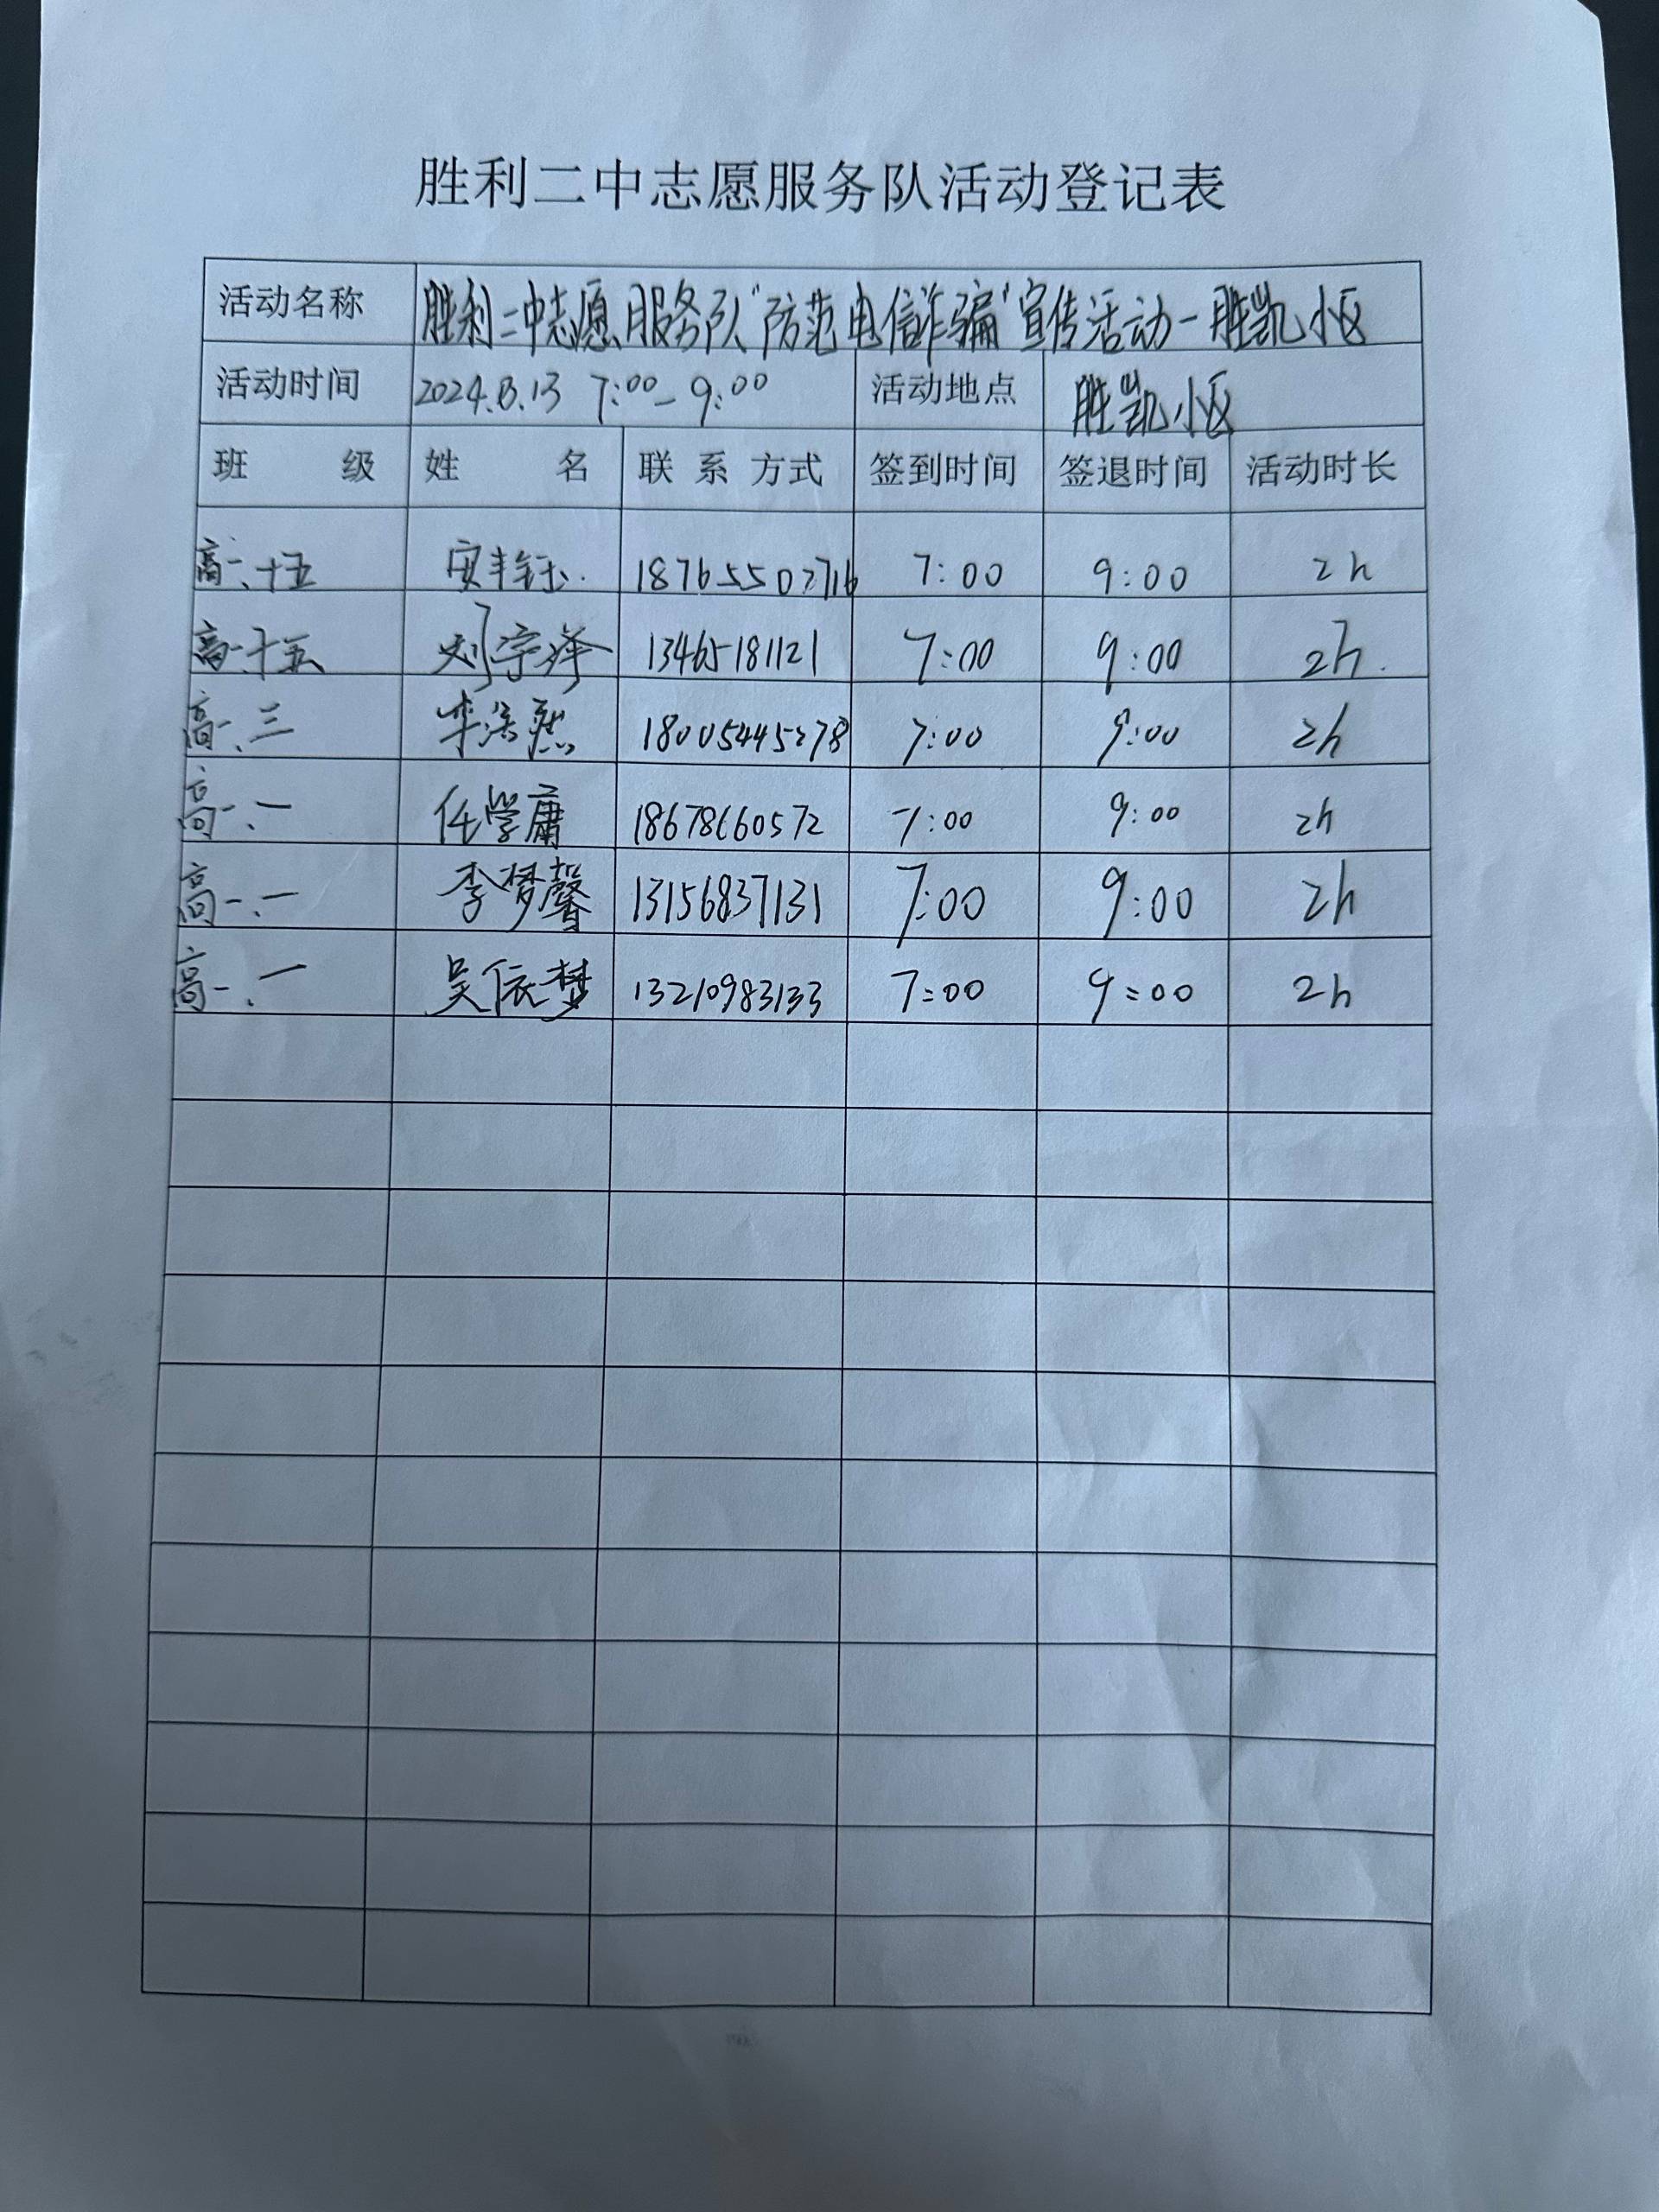 胜利二中志愿服务队活动登记表
活动名称 胜利二中志愿服务队“防范电信诈骗”宣传活动-胜凯小区
活动时间 2024.8.13 7:00-9:00 活动地点 胜凯小区
班 级 姓 名 联系方式 签到时间 签退时间 活动时长
高一、十五 18765502716 7:00 9:00 2h
高一、十五 刘宇泽 13465181121 7:00 9:00 2h.
高一、三 李浩然 18005445278 7:00 9:00 2h
高一、一 任学庸 18678660572 7:00 9:00 2h
高一、一 李梦馨 13156837131 7:00 9:00 2h
高一、一 吴依梦 13210983133 7:00 9:00 2h